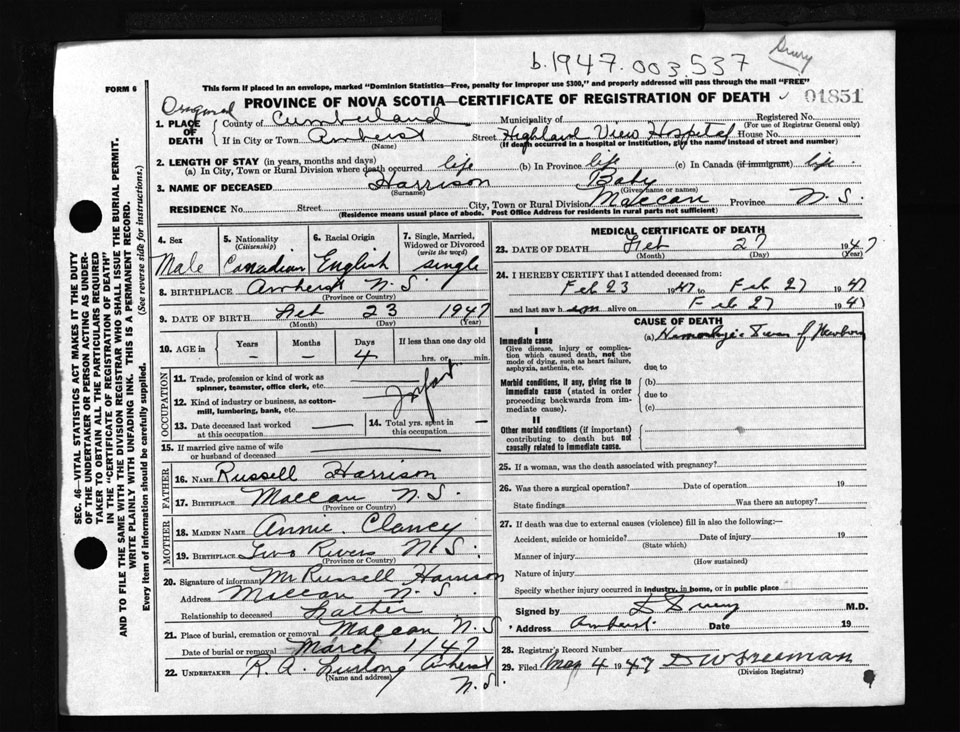 b.1947.003.537
Drury
FORM 6
This form if placed in an envelope, marked "Dominion Statistics—Free, penalty for improper use $300," and properly addressed will pass through the mail "FREE"
PROVINCE OF NOVA SCOTIA—CERTIFICATE OF REGISTRATION OF DEATH 01851
1. PLACE OF DEATH
County of Cumberland Municipality of Registered No.
(For use of Registrar General only)
If in City or Town Amherst Street Highland View Hospital House No.
(Name) (If death occurred in a hospital or institution, give the name instead of street and number)
2. LENGTH OF STAY (in years, months and days)
(a) In City, Town or Rural Division where death occurred life (b) In Province life (c) In Canada (if immigrant) life
3. NAME OF DECEASED Harrison Baby
(Surname) (Given name or names)
RESIDENCE No. Street City, Town or Rural Division Maccan Province N.S.
(Residence means usual place of abode. Post Office Address for residents in rural parts not sufficient)
4. Sex Male
5. Nationality (Citizenship) Canadian
6. Racial Origin English
7. Single, Married, Widowed or Divorced (write the word) single
8. BIRTHPLACE Amherst N.S.
(Province or Country)
9. DATE OF BIRTH Feb 23 1947
(Month) (Day) (Year)
10. AGE in Years Months Days If less than one day old
– – 4 hrs. or min.
OCCUPATION
11. Trade, profession or kind of work as spinner, teamster, office clerk, etc.
Infant
12. Kind of industry or business, as cotton-mill, lumbering, bank, etc.
13. Date deceased last worked at this occupation
14. Total yrs. spent in this occupation
15. If married give name of wife or husband of deceased
FATHER
16. NAME Russell Harrison
17. BIRTHPLACE Maccan N.S.
(Province or Country)
MOTHER
18. MAIDEN NAME Annie Clancy
19. BIRTHPLACE Two Rivers N.S.
(Province or Country)
20. Signature of informant Mr Russell Harrison
Address Maccan N.S.
Relationship to deceased Father
21. Place of burial, cremation or removal Maccan N.S
Date of burial or removal March 1/47
22. UNDERTAKER R.A. Furlong Amherst N.S.
(Name and address)
MEDICAL CERTIFICATE OF DEATH
23. DATE OF DEATH Feb 27 1947
(Month) (Day) (Year)
24. I HEREBY CERTIFY that I attended deceased from:
Feb 23 1947 to Feb 27 1947
and last saw h im alive on Feb 27 1947
CAUSE OF DEATH
I
Immediate cause
Give disease, injury or complication which caused death, not the mode of dying, such as heart failure, asphyxia, asthenia, etc.
(a) of Newborn
due to
Morbid conditions, if any, giving rise to immediate cause (stated in order proceeding backwards from immediate cause).
(b)
due to
(c)
II
Other morbid conditions (if important) contributing to death but not causally related to immediate cause.
25. If a woman, was the death associated with pregnancy?
26. Was there a surgical operation? Date of operation 19
State findings Was there an autopsy?
27. If death was due to external causes (violence) fill in also the following:—
Accident, suicide or homicide? Date of injury 19
(State which)
Manner of injury
(How sustained)
Nature of injury
Specify whether injury occurred in industry, in home, or in public place
Signed by D Drury M.D.
Address Amherst. Date 19
28. Registrar's Record Number
29. Filed Mar 4 1947 D W Freeman
(Division Registrar)
SEC. 46—VITAL STATISTICS ACT MAKES IT THE DUTY
OF THE UNDERTAKER OR PERSON ACTING AS UNDER-
TAKER TO OBTAIN ALL THE PARTICULARS REQUIRED
IN THE "CERTIFICATE OF REGISTRATION OF DEATH"
AND TO FILE THE SAME WITH THE DIVISION REGISTRAR WHO SHALL ISSUE THE BURIAL PERMIT.
WRITE PLAINLY WITH UNFADING INK. THIS IS A PERMANENT RECORD.
Every item of information should be carefully supplied. (See reverse side for instructions.)